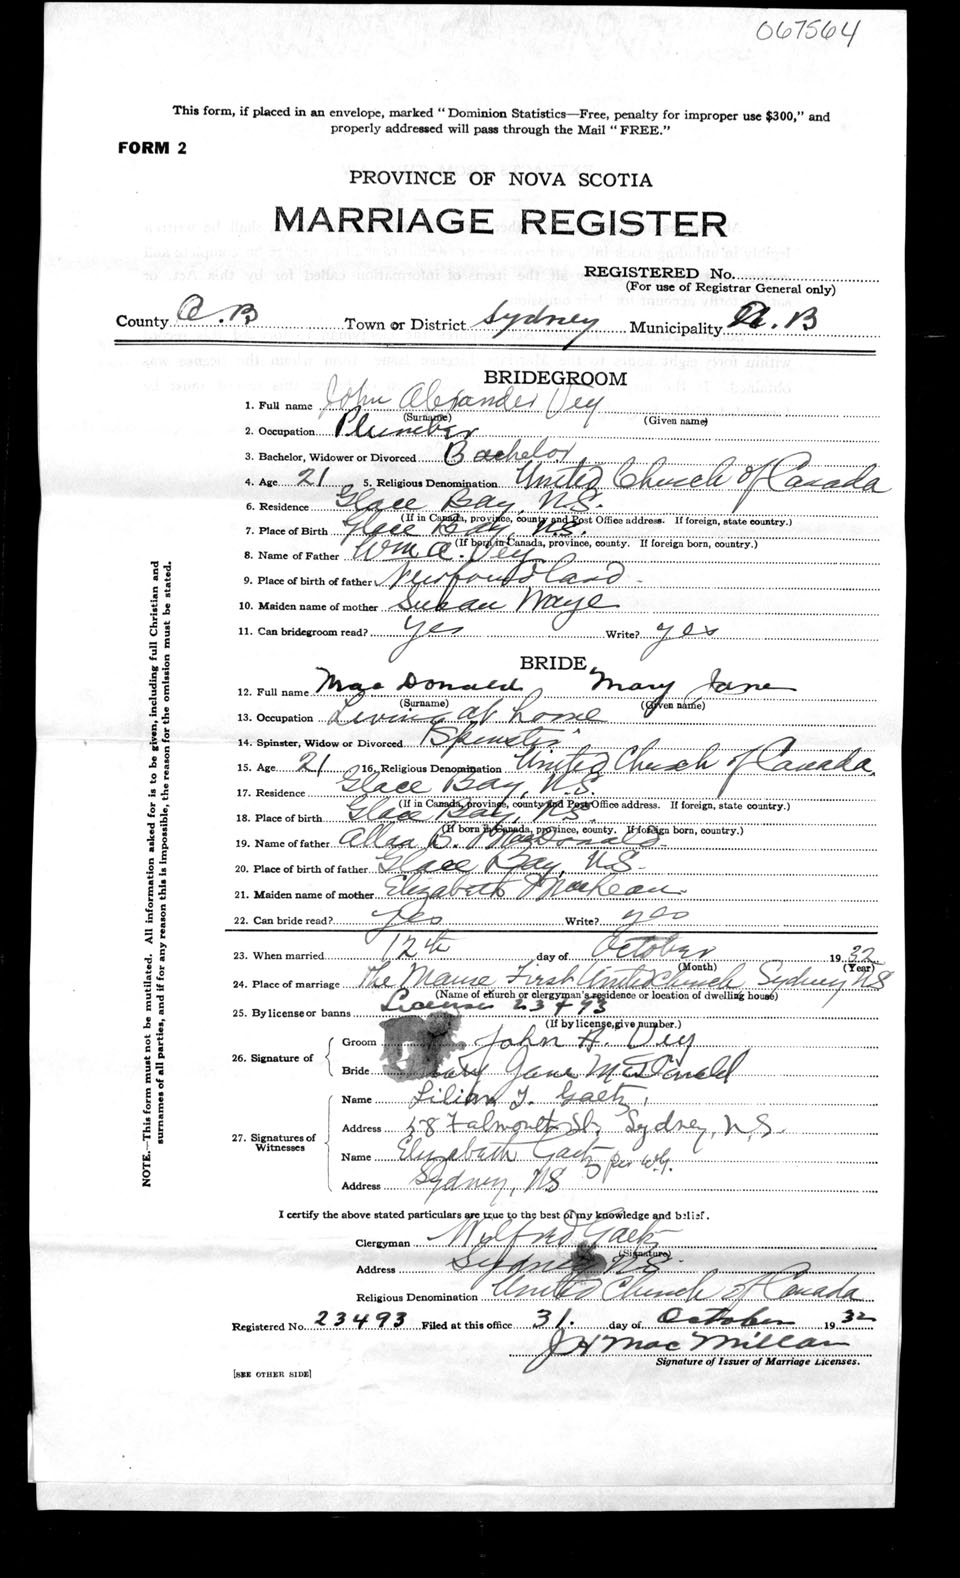 067564
This form, if placed in an envelope, marked "Dominion Statistics—Free, penalty for improper use $300," and
properly addressed will pass through the Mail "FREE."
FORM 2
PROVINCE OF NOVA SCOTIA
MARRIAGE REGISTER
REGISTERED No.
(For use of Registrar General only)
County C.B Town or District Sydney Municipality C.B
BRIDEGROOM
1. Full name John Alexander Vey
(Surname) (Given name)
2. Occupation Plumber
3. Bachelor, Widower or Divorced Bachelor
4. Age 21 5. Religious Denomination United Church of Canada
6. Residence Glace Bay, N.S.
(If in Canada, province, county and Post Office address. If foreign, state country.)
7. Place of Birth Glace Bay, N.S.
(If born in Canada, province, county. If foreign born, country.)
8. Name of Father Wm A. Vey
9. Place of birth of father Newfoundland
10. Maiden name of mother Susan Waye
11. Can bridegroom read? yes Write? yes
BRIDE
12. Full name MacDonald Mary Jane
(Surname) (Given name)
13. Occupation Living at home
14. Spinster, Widow or Divorced Spinster
15. Age 21 16. Religious Denomination United Church of Canada
17. Residence Glace Bay, N.S.
(If in Canada, province, county and Post Office address. If foreign, state country.)
18. Place of birth Glace Bay, N.S.
(If born in Canada, province, county. If foreign born, country.)
19. Name of father Allan B. MacDonald
20. Place of birth of father Glace Bay, N.S.
21. Maiden name of mother Elizabeth MacLean
22. Can bride read? yes Write? yes
23. When married 12th day of October 1932
(Month) (Year)
24. Place of marriage The Manse First United Church Sydney NS
(Name of church or clergyman's residence or location of dwelling house)
25. By license or banns License 23493
(If by license, give number.)
26. Signature of
Groom John A. Vey
Bride Mary Jane McDonald
27. Signatures of Witnesses
Name Lilian T. Gaetz
Address 58 Falmouth St, Sydney, N.S.
Name Elizabeth Gaetz per W.G.
Address Sydney, NS
I certify the above stated particulars are true to the best of my knowledge and belief.
Clergyman Wilfred Gaetz
(Signature)
Address Sydney NS
Religious Denomination United Church of Canada
Registered No. 23493 Filed at this office 31. day of October 1932
J H MacMillan
Signature of Issuer of Marriage Licenses.
[SEE OTHER SIDE]
NOTE.—This form must not be mutilated. All information asked for is to be given, including full Christian and
surnames of all parties, and if for any reason this is impossible, the reason for the omission must be stated.